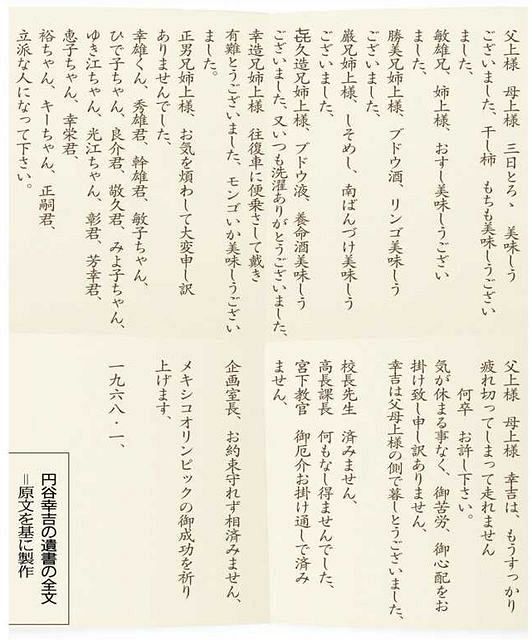 父上様　母上様　三日とろゝ　美味しう
ございました、干し柿　もちも美味しうござい
ました、
敏雄兄、姉上様、おすし美味しうござい
ました、
勝美兄姉上様、ブドウ酒、リンゴ美味しう
ございました、
巌兄姉上様、しそめし、南ばんづけ美味しう
ございました、
㐂久造兄姉上様、ブドウ液、養命酒美味しう
ございました、又いつも洗濯ありがとうございました、
幸造兄姉上様　往復車に便乗さして戴き
有難とうございました、モンゴいか美味しうござい
ました。
正男兄姉上様、お気を煩わして大変申し訳
ありませんでした、
幸雄くん、秀雄君、幹雄君、敏子ちゃん、
ひで子ちゃん、良介君、敬久君、みよ子ちゃん、
ゆき江ちゃん、光江ちゃん、彰君、芳幸君、
恵子ちゃん、幸栄君、
裕ちゃん、キーちゃん、正嗣君、
立派な人になって下さい。
父上様　母上様　幸吉は、もうすっかり
疲れ切ってしまって走れません
何卒　お許し下さい。
気が休まる事なく、御苦労、御心配をお
掛け致し申し訳ありません、
幸吉は父母上様の側で暮しとうございました、
校長先生　済みません、
高長課長　何もなし得ませんでした、
宮下教官　御厄介お掛け通しで済み
ません、
企画室長、お約束守れず相済みません、
メキシコオリンピックの御成功を祈り
上げます、
一九六八・一、
円谷幸吉の遺書の全文
＝原文を基に製作